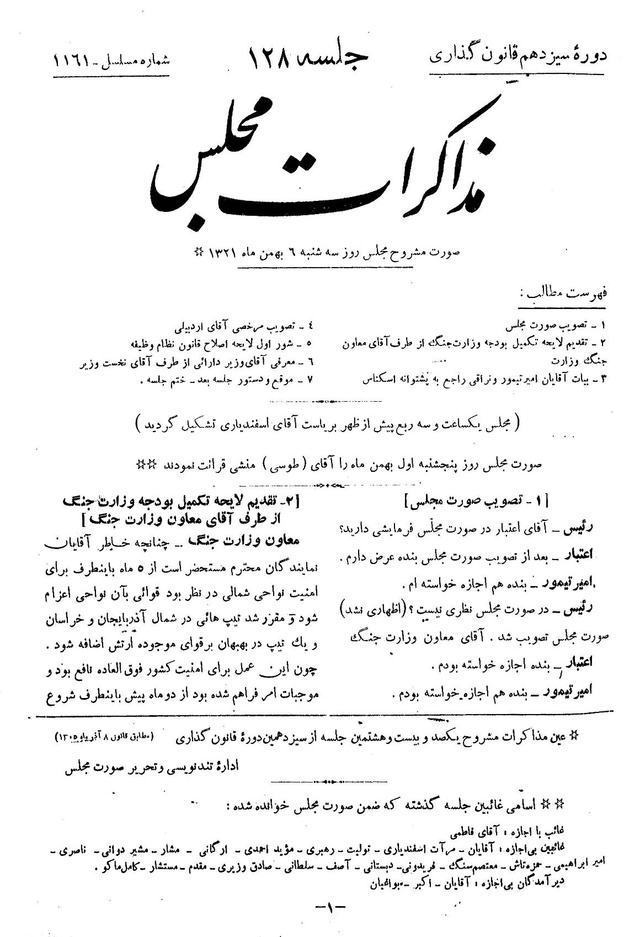 دورهٔ سیزدهم قانون گذاری
جلسه ۱۲۸
شماره مسلسل ـ ۱۱۶۱
مذاکرات مجلس
صورت مشروح مجلس روز سه شنبه ۶ بهمن ماه ۱۳۲۱ ☆
فهرست مطالب :
۱ ـ تصویب صورت مجلس
۲ ـ تقدیم لایحه تکمیل بودجه وزارت جنگ از طرف آقای معاون
جنگ وزارت
۳ ـ بیات آقایان امیرتیمور ونراقی راجع به پشتوانه اسکناس
۴ ـ تصویب مرخصی آقای اردبیلی
۵ ـ شور اول لایحه اصلاح قانون نظام وظیفه
۶ ـ معرفی آقای وزیر دارائی از طرف آقای نخست وزیر
۷ ـ موقع و دستور جلسه بعد ـ ختم جلسه .
( مجلس یکساعت و سه ربع پیش از ظهر بریاست آقای اسفندیاری تشکیل گردید )
صورت مجلس روز پنجشنبه اول بهمن ماه را آقای ( طوسی ) منشی قرائت نمودند ☆☆
[ ۱ ـ تصویب صورت مجلس ]
رئیس ـ آقای اعتبار در صورت مجلس فرمایشی دارید؟
اعتبار ـ بعد از تصویب صورت مجلس بنده عرض دارم .
امیر تیمور ـ بنده هم اجازه خواسته ام .
رئیس ـ در صورت مجلس نظری نیست ؟ (اظهاری نشد)
صورت مجلس تصویب شد . آقای معاون وزارت جنگ
اعتبار ـ بنده اجازه خواسته بودم .
امیر تیمور ـ بنده هم اجازه خواسته بودم .
[۲ـ تقدیم لایحه تکمیل بودجه وزارت جنگ
از طرف آقای معاون وزارت جنگ ]
معاون وزارت جنگ ـ چنانچه خاطر آقایان
نمایندگان محترم مستحضر است از ۵ ماه باینطرف برای
امنیت نواحی شمالی در نظر بود قوائی بآن نواحی اعزام
شود و مقرر شد تیپ هائی در شمال آذربایجان و خراسان
و یك تیپ در بهبهان برقوای موجوده ارتش اضافه شود .
چون این عمل برای امنیت کشور فوق العاده نافع بود و
موجبات امر فراهم شده بود از دوماه پیش باینطرف شروع
☆ عین مذاکرات مشروح یکصد و بیست و هشتمین جلسه از سیزدهمین دورهٔ قانون گذاری (مطابق قانون ۸ آذر ماه ۱۳۰۵)
ادارهٔ تند نویسی و تحریر صورت مجلس
☆☆ اسامی غائبین جلسه گذشته که ضمن صورت مجلس خوانده شده :
غائب با اجازه : آقای فاطمی
غائبین بی اجازه : آقایان ـ مرآت اسفندیاری ـ تولیت ـ رهبری ـ مؤید احمدی ـ ارگانی ـ مشار ـ مشیر دوانی ـ ناصری ـ
امیر ابراهیمی ـ حمزه تاش ـ معتصم سنگ ـ فریدونی ـ دبستانی ـ آصف ـ سلطانی ـ صادق وزیری ـ مقدم ـ مستشار ـ کامل ماکو .
دیر آمدگان بی اجازه : آقایان ـ اکبر ـ
ـ۱ـ